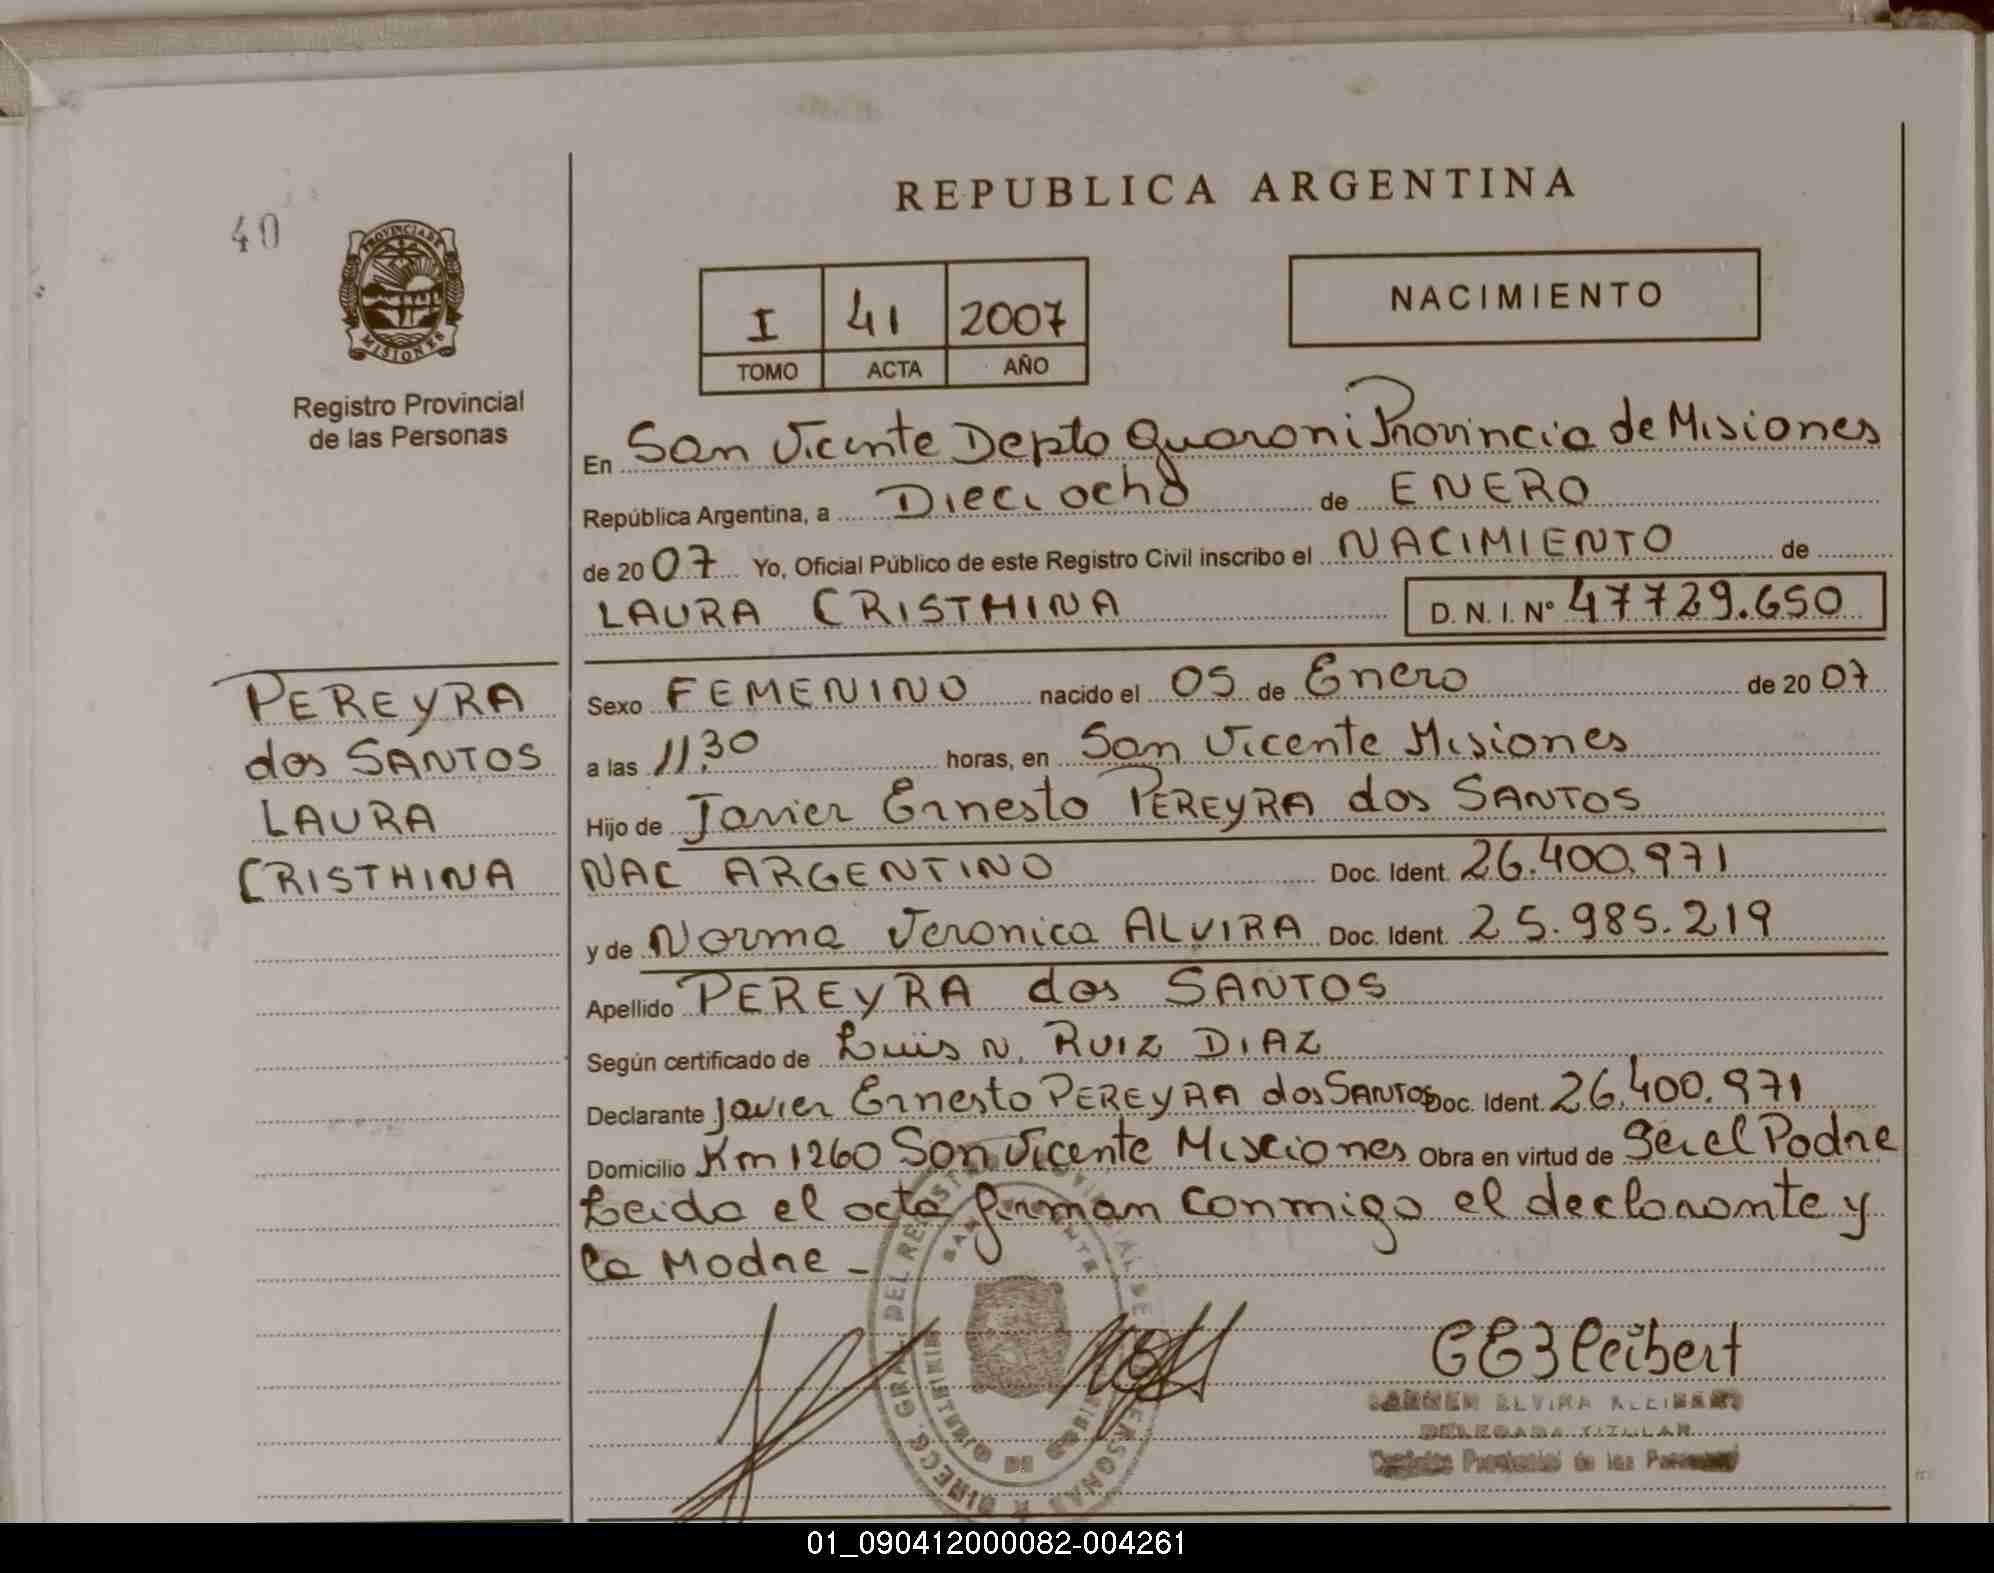 REPUBLICA ARGENTINA
40
PROVINCIA DE
MISIONES
Registro Provincial
de las Personas
I 41 2007
TOMO ACTA AÑO
NACIMIENTO
En San Vicente Depto Guarani Provincia de Misiones
República Argentina, a Dieciocho de ENERO
de 2007 Yo, Oficial Público de este Registro Civil inscribo el NACIMIENTO de
LAURA CRISTHINA D. N. I. Nº 47729.650
PEREYRA
dos SANTOS
LAURA
CRISTHINA
Sexo FEMENINO nacido el 05 de Enero de 2007
a las 11,30 horas, en San Vicente Misiones
Hijo de Javier Ernesto PEREYRA dos SANTOS
NAC ARGENTINO Doc. Ident. 26.400.971
y de Norma Veronica ALVIRA Doc. Ident. 25.985.219
Apellido PEREYRA dos SANTOS
Según certificado de Luis N. RUIZ DIAZ
Declarante Javier Ernesto PEREYRA dos SANTOS Doc. Ident. 26.400.971
Domicilio Km 1260 San Vicente Misciones Obra en virtud de Ser el Padre
Leida el acta firman conmigo el declarante y
la Madre -
DELEGADA TITULAR
01_090412000082-004261